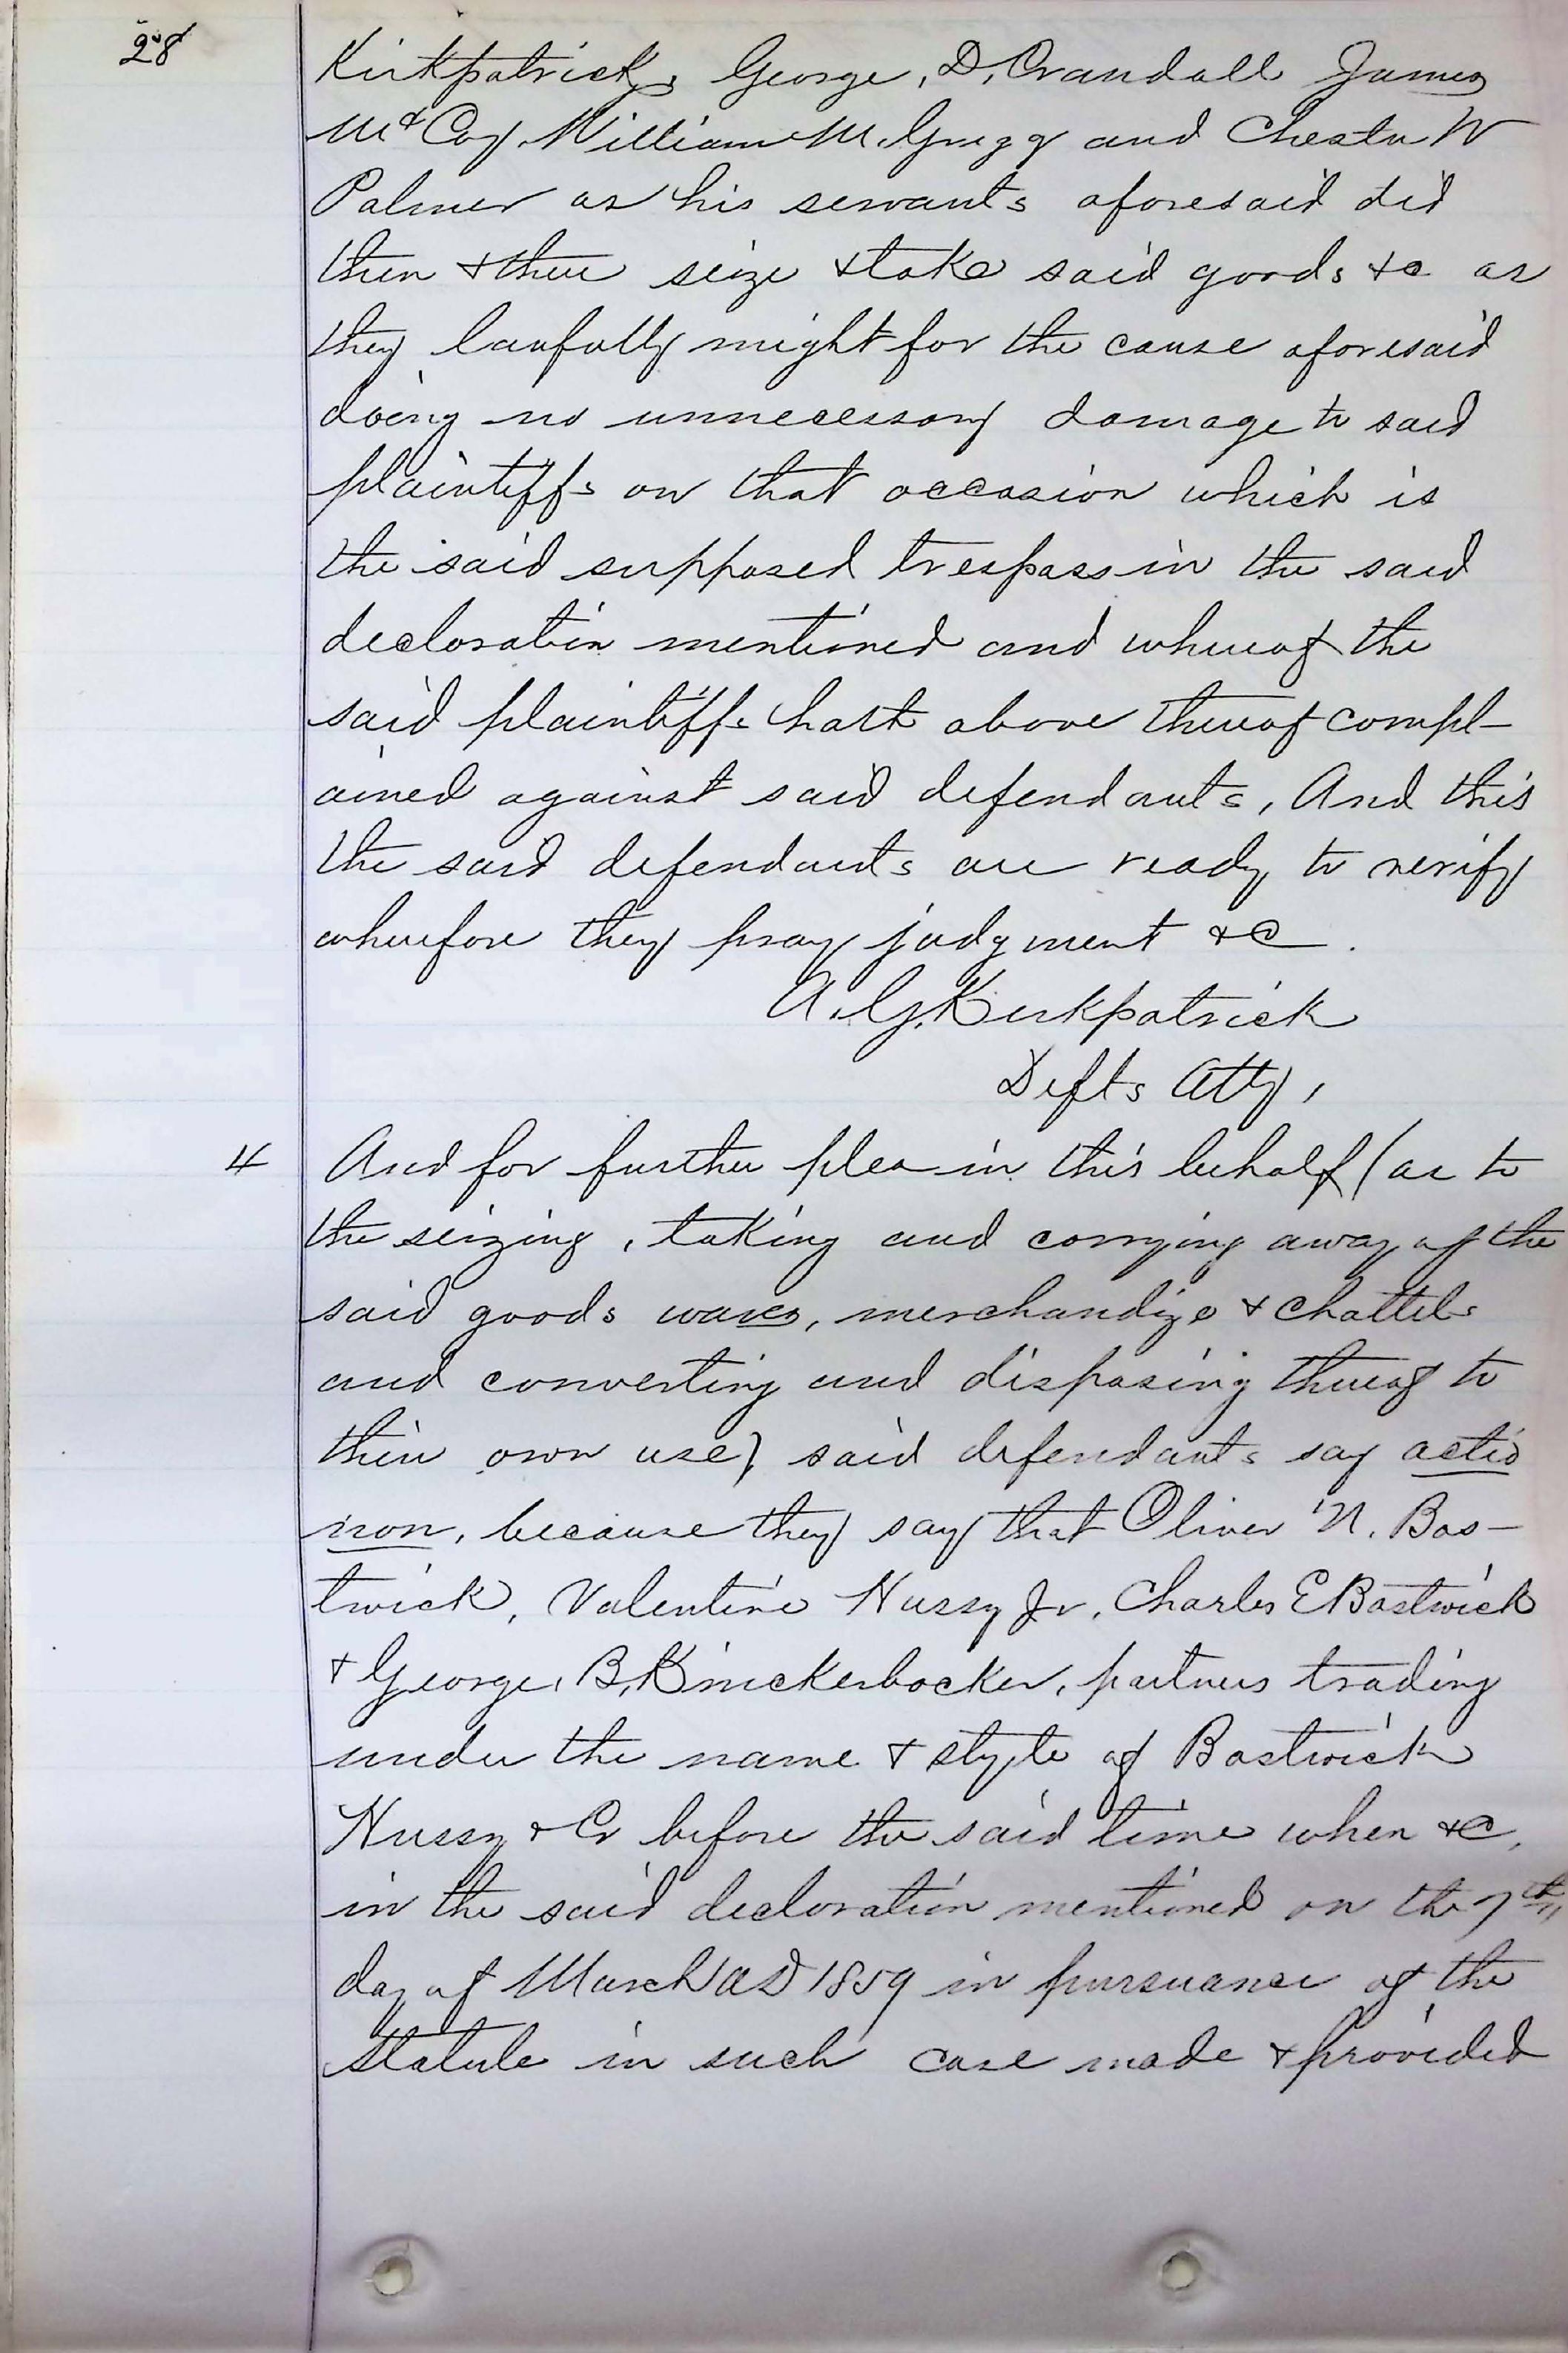 28
Kirkpatrick, George, D, Crandall James
McCoy, William M. Gregg and Chester W
Palmer as his servants aforesaid did
then & there seize & take said goods &c as
they lawfully might for the cause aforesaid
doing no unnecessary damage to said
plaintiffs on that occasion which is
the said supposed trespass in the said
declaration mentioned and whereof the
said plaintiffs hath above thereof compl-
ained against said defendants, And this
the said defendants are ready to verify
wherefore they pray judgment &c.
A. G. Kirkpatrick
Defts Atty,
4 And for further plea in this behalf (as to
the seizing, taking and carrying away of the
said goods wares, merchandize & chattels
and converting and disposing thereof to
their own use) said defendants say actio
non, because they say that Oliver N. Bos-
twick, Valentine Hussy Jr, Charles E Bostwick
& George, B, Knickerbocker, partners trading
under the name & style of Bostwick
Hussy & Co before the said time when &c,
in the said declaration mentioned on the 7th
day of March AD 1859 in pursuance of the
statute in such case made & provided